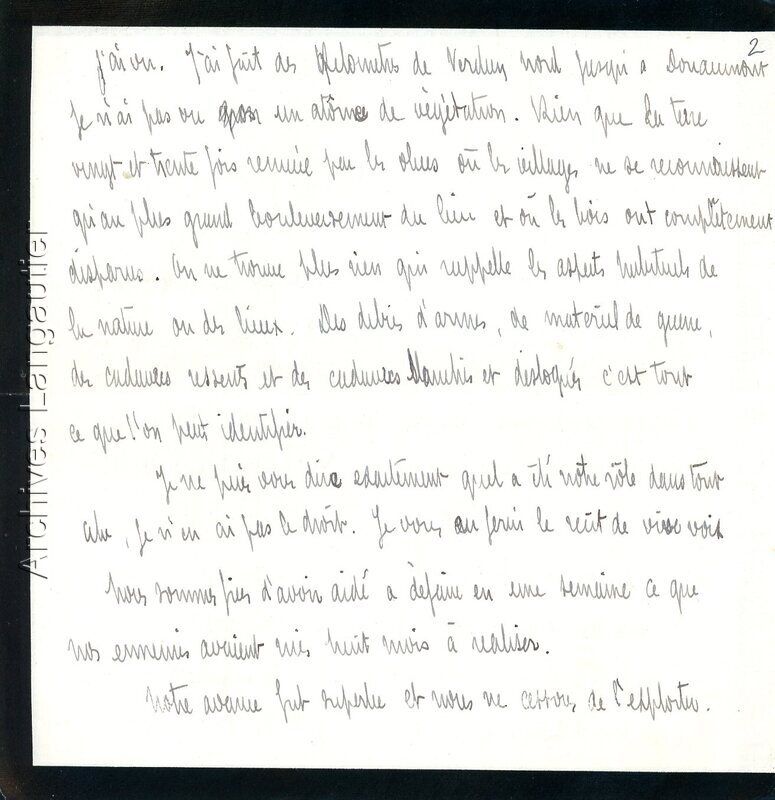 2
j'ai vu. J'ai fait des kilometres de Verdun nord jusqu'a Douaumont
je n'ai pas vu un atôme de végétation. Rien que la terre
vingt et trente fois remuée par les obus où les villages ne se reconnaissent
qu'au plus grand bouleversement du lieu et où les bois ont complètement
disparus. On ne trouve plus rien qui rappelle les aspects habituels de
la nature ou des lieux. Des débris d'armes, de matériel de guerre,
des cadavres ressents et des cadavres blanchis et dislogués c'est tout
ce que l'on peut identifier.
Je ne puis vous dire exactement quel a été notre rôle dans tout
cela, je n'en ai pas le droit. Je vous en ferai le récit de vive voix
Nous sommes fiers d'avoir aidé a défaire en une semaine ce que
nos ennemis avaient mis huit mois à realiser.
Notre avance fut superbe et nous ne cessons de l'exploiter.
Archives Langautier